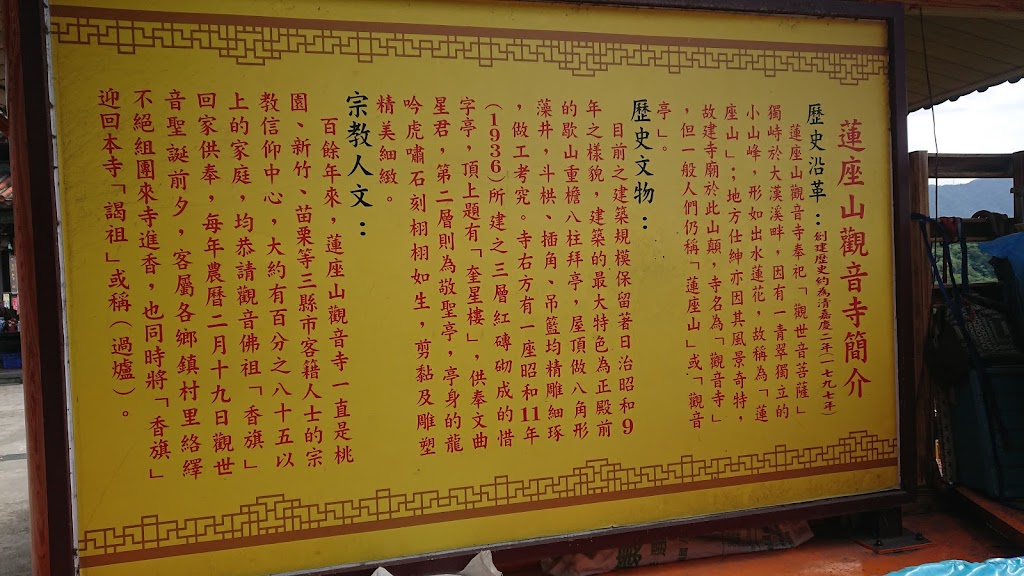 蓮座山觀音寺簡介
歷史沿革：創建歷史約為清嘉慶二年(一七九七年)
蓮座山觀音寺奉祀「觀世音菩薩」
獨峙於大漢溪畔，因有一青翠獨立的
小山峰，形如出水蓮花，故稱為「蓮
座山」；地方仕紳亦因其風景奇特，
故建寺廟於此山巔，寺名為「觀音寺」
，但一般人們仍稱「蓮座山」或「觀音
亭」。
歷史文物：
目前之建築規模保留著日治昭和9
年之樣貌，建築的最大特色為正殿前
的歇山重檐八柱拜亭，屋頂做八角形
藻井，斗栱、插角、吊籃均精雕細琢
，做工考究。寺右方有一座昭和11年
(1936)所建之三層紅磚砌成的惜
字亭，頂上題有「奎星樓」，供奉文曲
星君，第二層則為敬聖亭，亭身的龍
吟虎嘯石刻栩栩如生，剪黏及雕塑
精美細緻。
宗教人文：
百餘年來，蓮座山觀音寺一直是桃
園、新竹、苗栗等三縣市客籍人士的宗
教信仰中心，大約有百分之八十五以
上的家庭，均恭請觀音佛祖「香旗」
回家供奉，每年農曆二月十九日觀世
音聖誕前夕，客屬各鄉鎮村里絡繹
不絕組團來寺進香，也同時將「香旗」
迎回本寺「謁祖」或稱(過爐)。